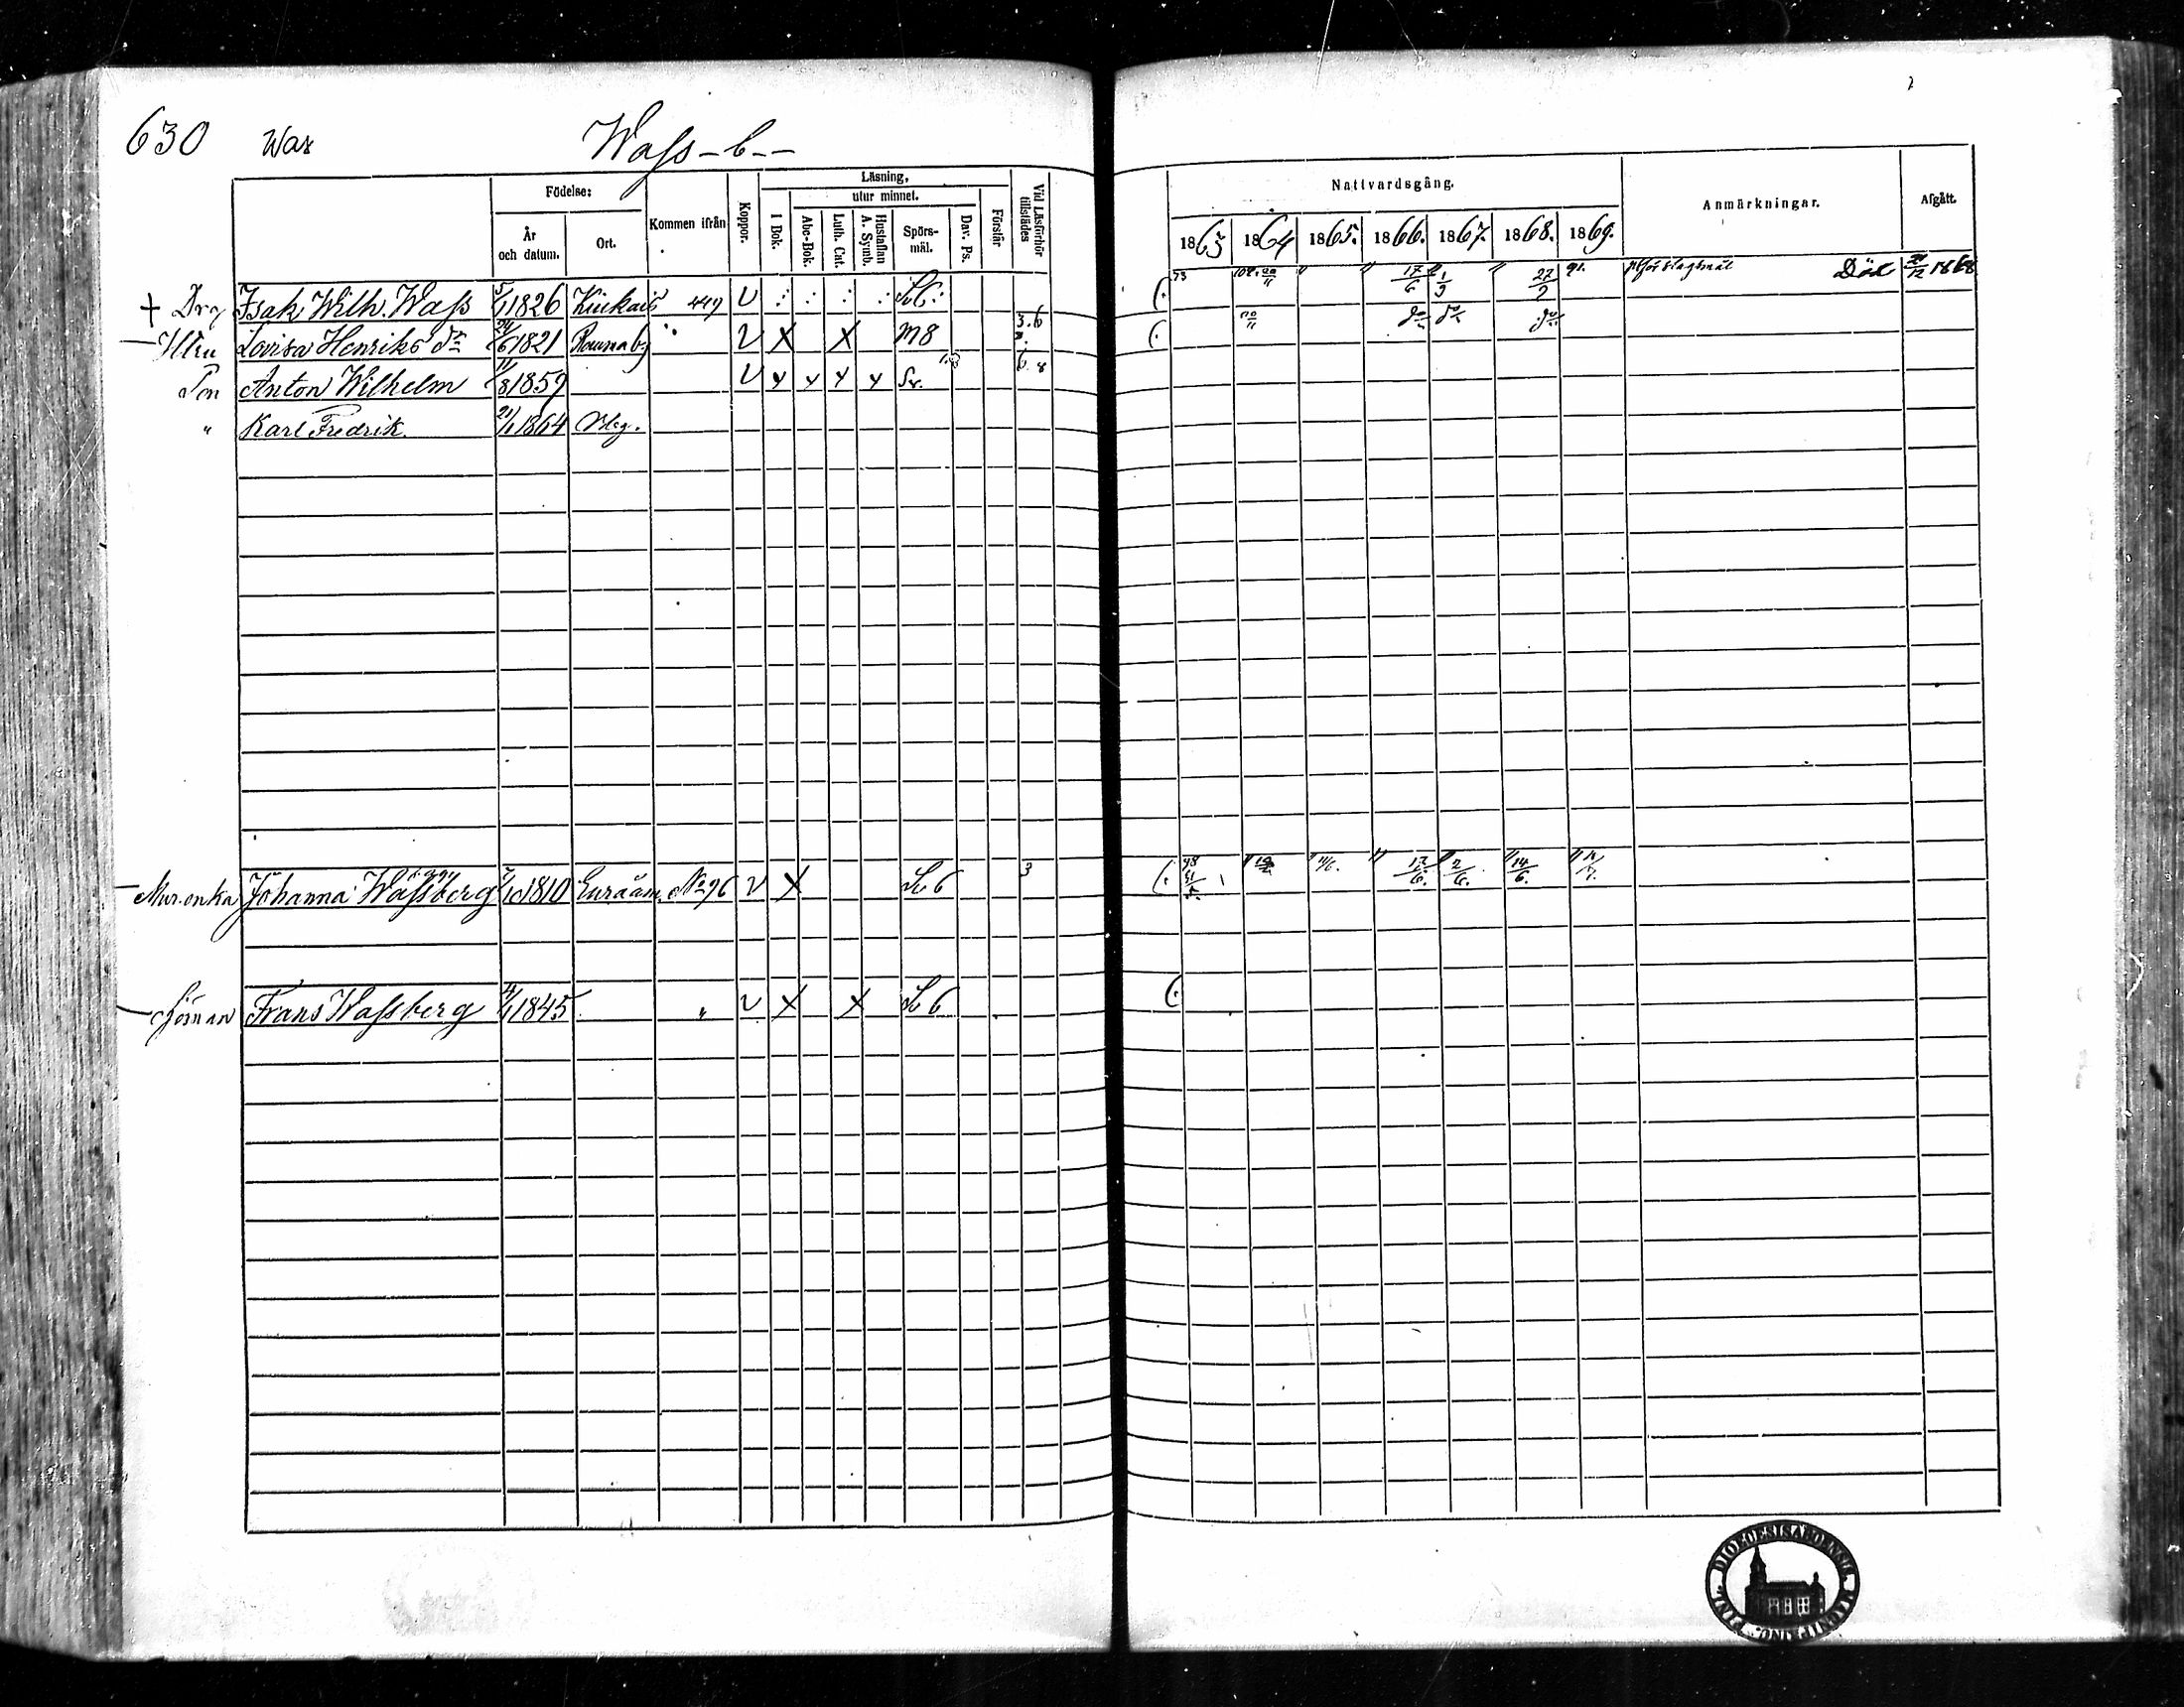 630 Wax Wass-b--
Födelse: Kommen ifrån Koppor. Läsning, Vid Läsförhör tillstädes Nattvardsgång. Anmärkningar. Afgått.
År och datum. Ort. I Bok. utur minnet. Förstår
Abc-Bok. Luth. Cat. Hustaflan A. Symb. Spörs-mål. Dav. Ps.
1863 1864 1865. 1866. 1867. 1868. 1869.
+ Drg Isak Wilh. Wass 5/1 1826 Kiukais 449 V Sv 6. 73 108. 20/11 " " 17/6 " 1/9 " 27/9 91. Död 1868
Lovisa Henriks dr 24/6 1821 Raumaby " V X X M8 3.6 20/11 do do do
Son Anton Wilhelm 11/8 1859 V Sv. 6 8
" Karl Fredrik. 21/1 1864
Mur.enka Johanna Wassberg 7/10 1810 Euraåm. No 96 V X Sv 6 3 48 17/6. 2/6. 14/6.
Frans Wassberg 4/1 1845 " V X X Sv 6
DIOECESIS ABOENSIS.